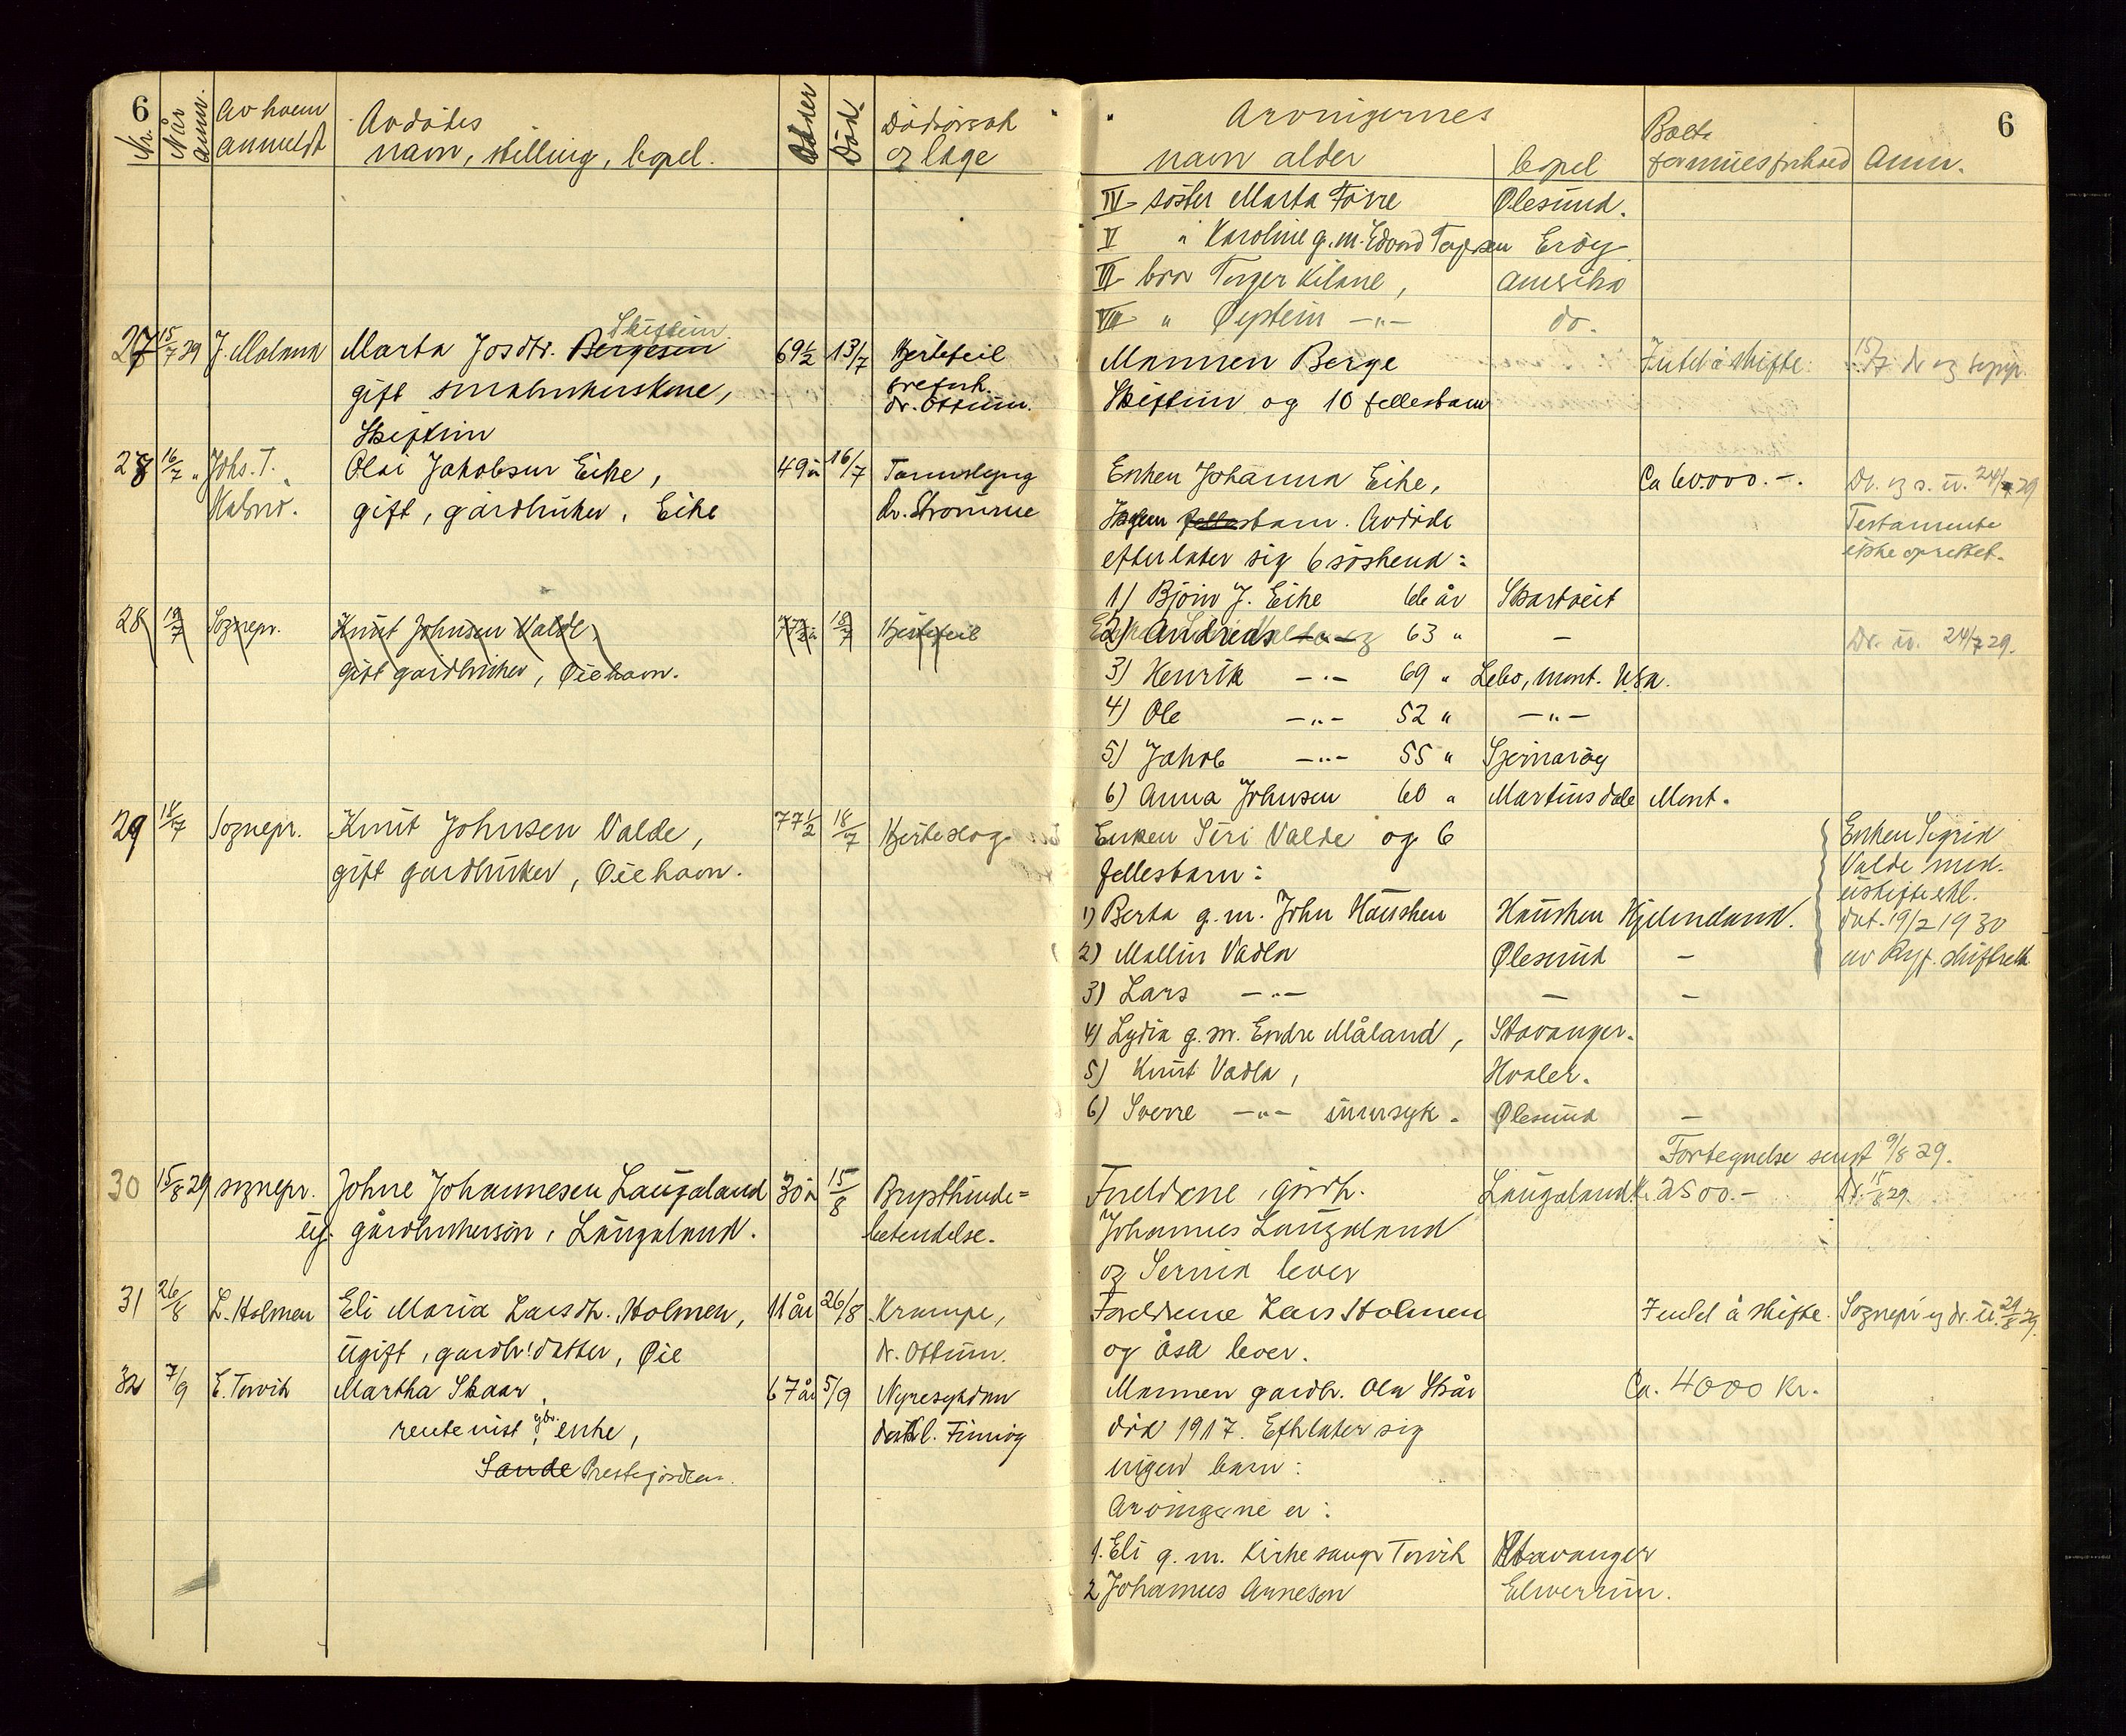 6
Nr.
Når anm.
Av hvem anmeldt
Avdødes navn, stilling, bopel.
Alder
Död.
Dödsörsak og læge
27 15/7 29 J. Maland Marta Josdtr. Bergesen Skiftun 69½ 13/7 Hjertefeil
gift småbrukerskone,
dr. Ottum.
Skiftun
28 16/7 " Johs. T. Olai Jakobsen Eike, 49 år 16/7
gift, gårdbruker, Eike dr. Strømme
28 19/7 Sognepr. Knut Johnsen Valde, 77½ år 18/7 Hjertefeil
gift gardbruker, Øiehavn.
29 18/7 Sognepr. Knut Johnsen Valde, 77½ 18/7 Hjerteslag
gift gardbruker, Øiehavn.
30 15/8 29 sognepr. Johne Johannesen Laugaland 30 år 15/8 Brysthinde=
ug. gårdbrukersøn, Laugaland. betendelse.
31 26/8 L. Holmen Eli Maria Larsdtr. Holmen, 11 år 26/8 Krampe,
ugift, gardbr. datter, Øie dr. Ottum.
32 7/9 E. Torvik Martha Skaar, 67 år 5/9 Nyresykdom
rentenist, gbr. enke,
Sande Prestegården.
6
Arvingernes
navn alder
bopel
Boets formuesforhold
Anm.
IV söster Marta Førre Ølesund.
V " Karoline g.m. Edvard Terjesen Eröy
VI bror Torger Kilane, Amerika
VII " Øystein -"- do.
Mannen Berge Intet å skifte 15/7 dr og sognpr.
Skiftun og 10 fellesbarn
Enken Johanna Eike, Ca 60.000.-. Dr. og s. u. 24/7 29
Ingen fellesbarn. Avdöde Testamente
efterlater sig 6 söskend: ikke oprettet.
1) Björn J. Eike 66 år Skartveit
2) Andreas -"- 63 " - Dr. u. 24/7 29.
3) Henrik -"- 69 " Lebo, Mont. Usa.
4) Ole -"- 52 " -"-
5) Jakob -"- 55 " Sjernaröy
6) Anna Johnsen 60 " Martinsdale Mont.
Enken Siri Valde og 6 Enken Sigrid
fellesbarn: Valde med.
uskifteskl.
1) Berta g.m. John Hausken Hausken Hjelmeland. dat. 19/2 1930
2) Mallin Vadla Ølesund - av Ryf. skifterett
3) Lars -"- - -
4) Lydia g.m. Endre Måland, Stavanger.
5) Knut Vadla, Hvaler.
6) Sverre -"- sinnsyk. Ølesund -
Fortegnelse sendt 9/8 29.
Foreldrene, gårdb. Laugaland Kr. 2500.- Dr. 15/8 29.
Johannes Laugaland
og Serina lever
Foreldrene Lars Holmen Intet å skifte. Sognepr og dr. u. 29/8 29.
og Åsa lever.
Mannen gardbr. Ola Skår Ca. 4000 Kr.
död 1917. Efterlater sig
ingen barn:
Arvingerne er:
1. Eli g.m. Kirkesanger Torvik Stavanger
2 Johannes Arneson Elverum.